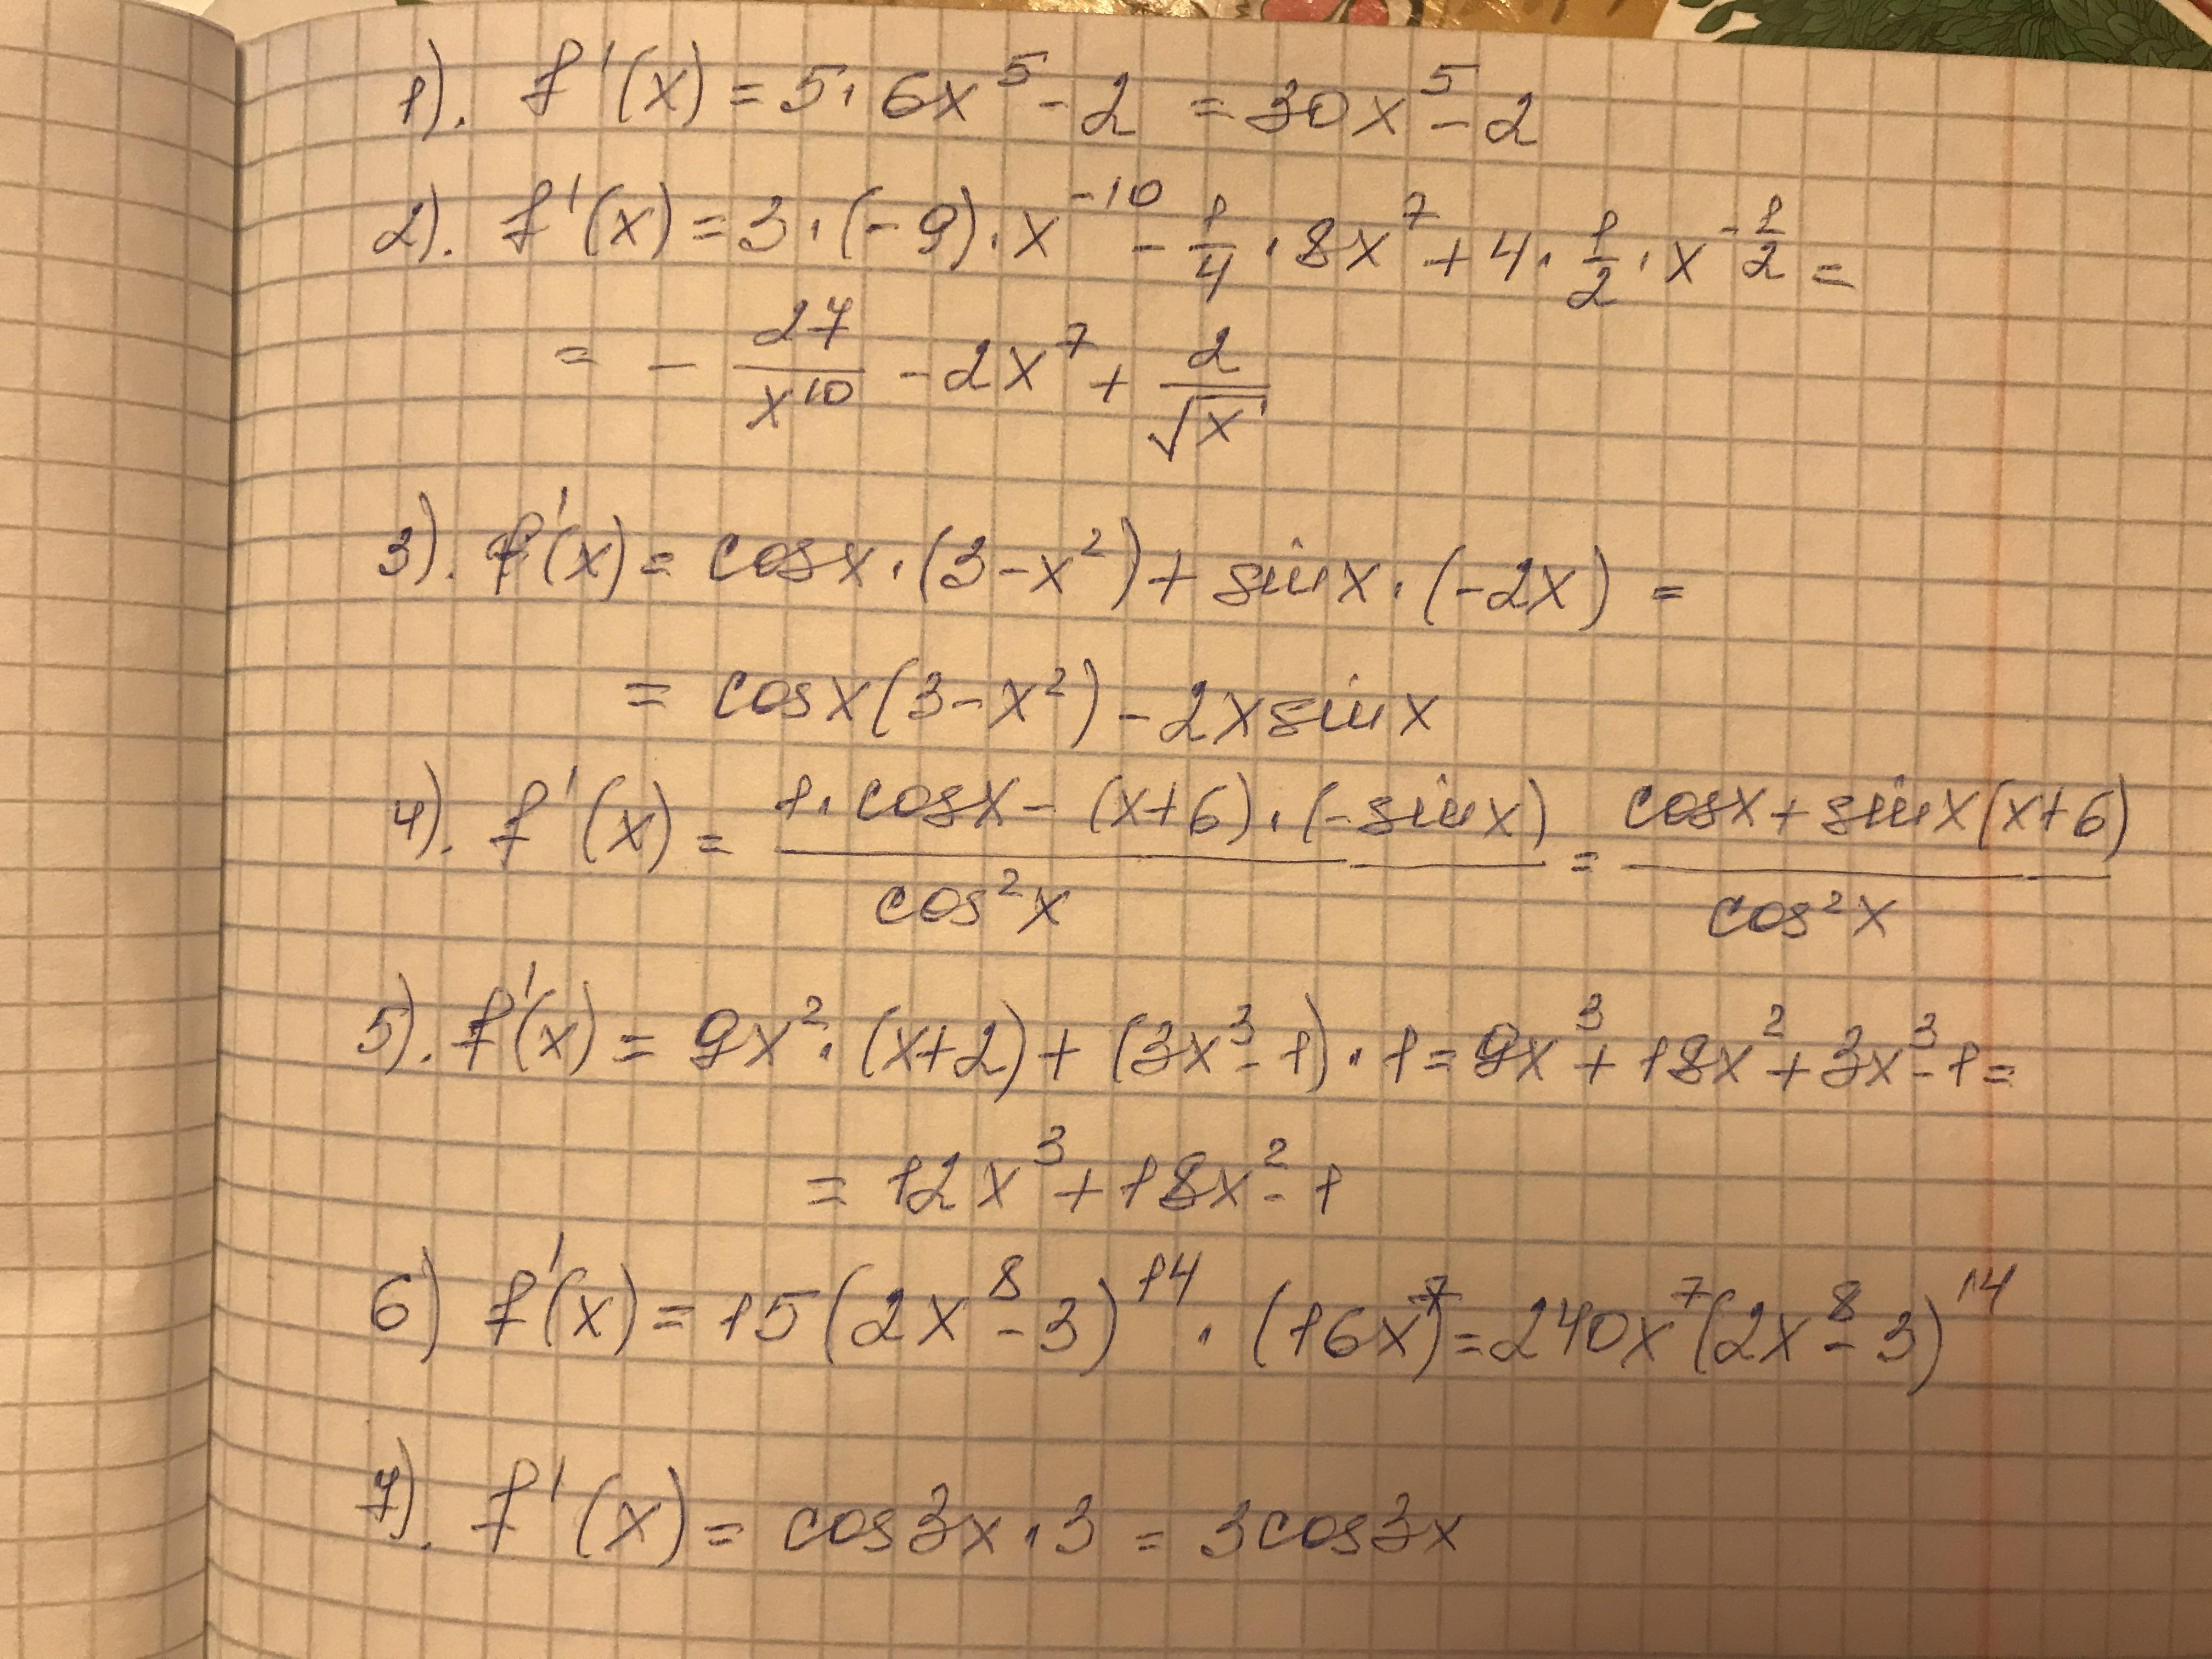 1). f'(x) = 5 · 6x⁵ - 2 = 30x⁵ - 2
2). f'(x) = 3 · (-9) · x⁻¹⁰ - 1/4 · 8x⁷ + 4 · 1/2 · x^(-1/2) =
= - 27/x¹⁰ - 2x⁷ + 2/√x
3). f'(x) = cosx · (3-x²) + sinx · (-2x) =
= cosx(3-x²) - 2xsinx
4). f'(x) = (1 · cosx - (x+6) · (-sinx))/cos²x = (cosx + sinx(x+6))/cos²x
5). f'(x) = 9x² · (x+2) + (3x³-1) · 1 = 9x³ + 18x² + 3x³ - 1 =
= 12x³ + 18x² - 1
6) f'(x) = 15(2x⁸-3)¹⁴ · (16x⁷) = 240x⁷(2x⁸-3)¹⁴
7). f'(x) = cos3x · 3 = 3cos3x